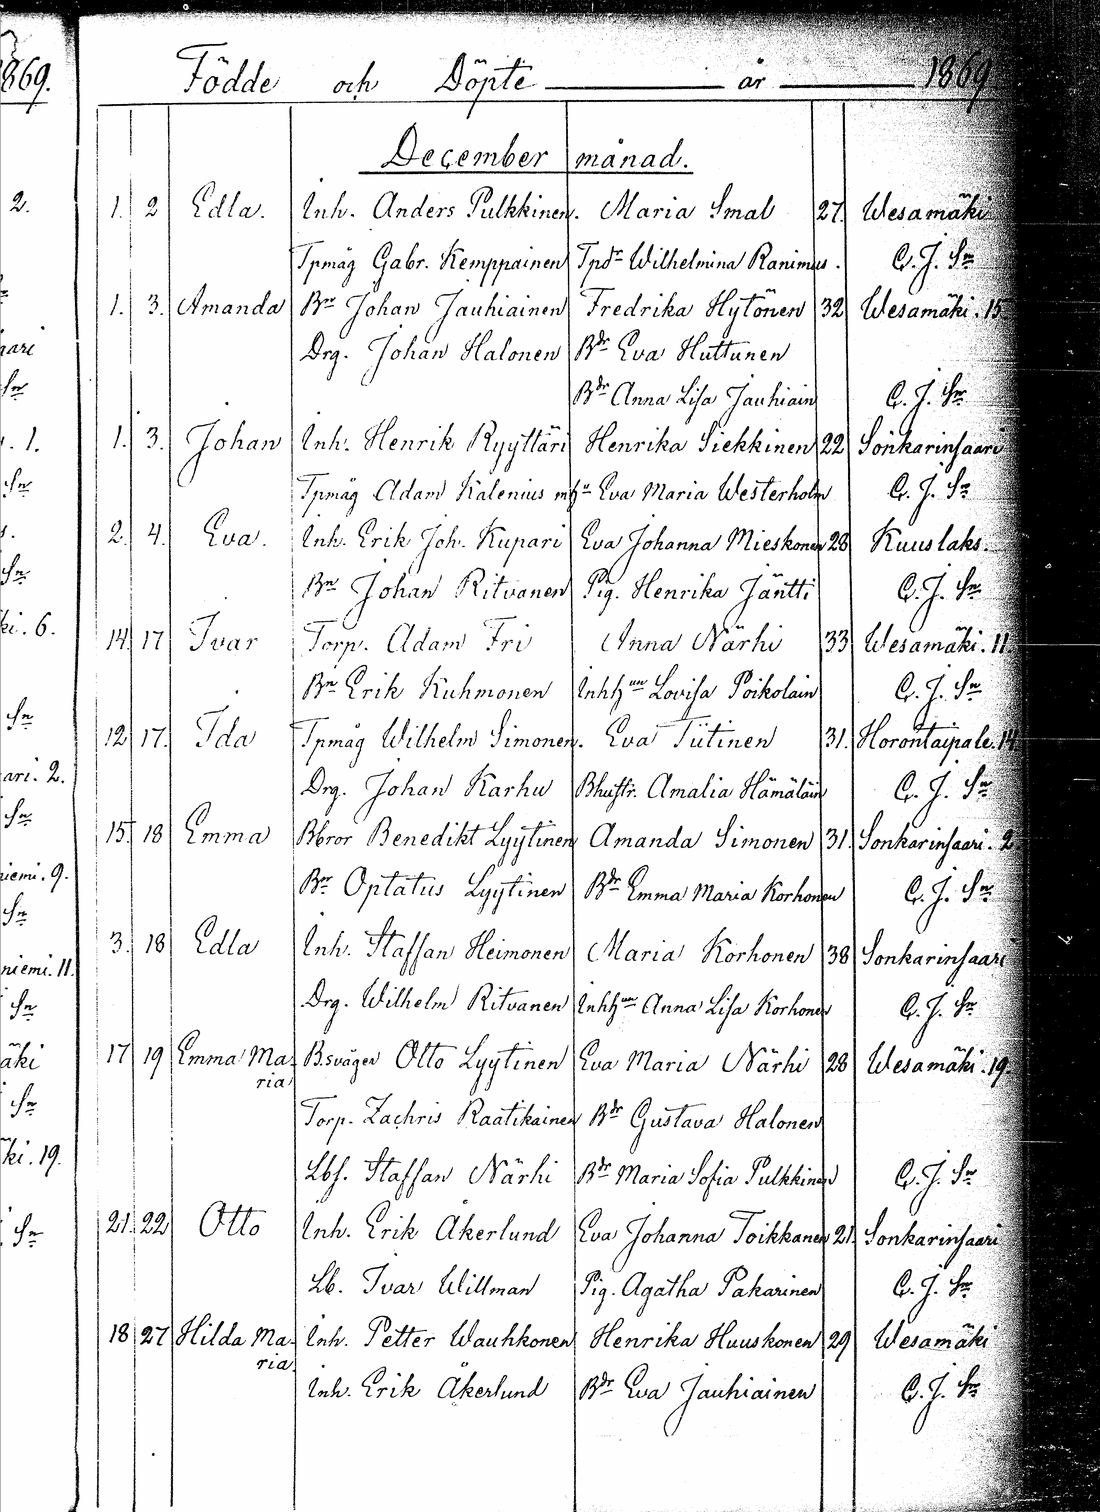 1869.
Födde och Döpte år 1869
December månad.
2.
1. 2 Edla. Inh. Anders Pulkkinen. Maria Smal 27. Wesamäki
Tpmåg Gabr. Kemppainen Tpdr Wilhelmina Ranimus. C. J. Sn
1. 3. Amanda Bn Johan Jauhiainen Fredrika Hytönen 32 Wesamäki. 15
Drg. Johan Halonen Bdr Eva Huttunen
Bdr Anna Lisa Jauhiain C. J. Sn
1. 3. Johan Inh. Henrik Ryyttäri Henrika Siekkinen 22 Sonkarinsaari
Tpmåg Adam Kalenius m hu Eva Maria Westerholm C. J. Sn
2. 4. Eva. Inh. Erik Joh. Kupari Eva Johanna Mieskonen 28 Kuuslaks.
Bn Johan Ritvanen Pig. Henrika Jäntti C. J. Sn
ki. 6.
14 17 Ivar Torp. Adam Fri Anna Närhi 33 Wesamäki. 11.
Bn Erik Kuhmonen Inhhun Lovisa Poikolain C. J. Sn
12 17. Ida Tpmåg Wilhelm Simonen. Eva Tiitinen 31. Horontaipale. 14
ari. 2.
Drg. Johan Karhu Bhustr. Amalia Hämäläin C. J. Sn
15 18 Emma Bbror Benedikt Lyytinen Amanda Simonen 31. Sonkarinsaari. 2
niemi. 9.
Bn Optatus Lyytinen Bdr Emma Maria Korhonen C. J. Sn
3. 18 Edla Inh. Staffan Heimonen Maria Korhonen 38 Sonkarinsaari
niemi. 11.
Drg. Wilhelm Ritvanen Inhhun Anna Lisa Korhonen C. J. Sn
17 19 Emma Ma- B.svåger Otto Lyytinen Eva Maria Närhi 28 Wesamäki. 19.
ria
Torp. Zachris Raatikainen Bdr Gustava Halonen
ki. 19.
Lbs. Staffan Närhi Bdr Maria Sofia Pulkkinen C. J. Sn
21. 22 Otto Inh. Erik Åkerlund Eva Johanna Toikkanen 21. Sonkarinsaari
Lb. Ivar Willman Pig. Agatha Pakarinen C. J. Sn
18 27 Hilda Ma- Inh. Petter Wauhkonen Henrika Huuskonen 29 Wesamäki
ria.
Inh. Erik Åkerlund Bdr Eva Jauhiainen C. J. Sn